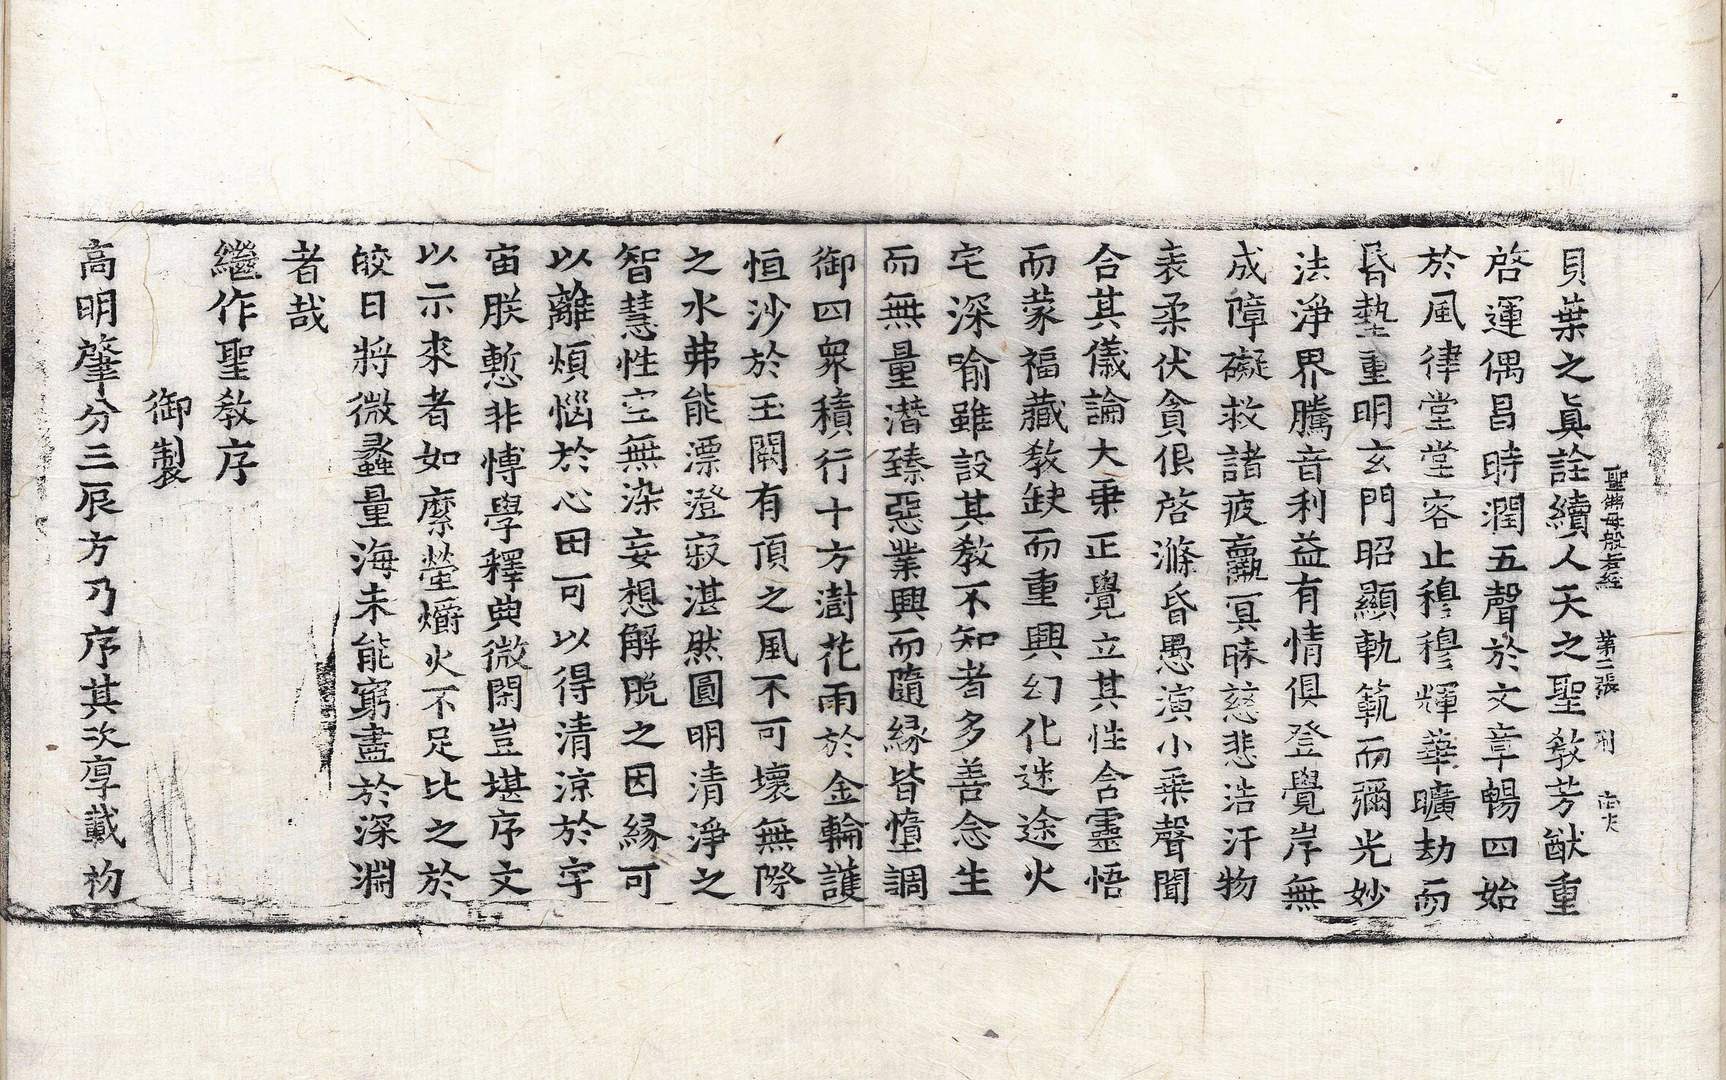 聖佛母般若經 第二張 刑
貝葉之眞詮續人天之聖教芳猷重
啓運偶昌時潤五聲於文章暢四始
於風律堂堂容止穆穆輝華曠劫而
昏墊重明玄門昭顯軌範而彌光妙
法淨界騰音利益有情俱登覺岸無
成障礙救諸疲羸冥昧慈悲浩汗物
表柔伏貪佷啓滌昏愚演小乘聲聞
合其儀論大乘正覺立其性含靈悟
而蒙福藏教缺而重興幻化迷途火
宅深喻雖設其教不知者多善念生
而無量潛臻惡業興而隨緣皆墮調
御四衆積行十方澍花雨於金輪護
恒沙於王闕有頂之風不可壞無際
之水弗能漂澄寂湛然圓明清淨之
智慧性空無染妄想解脫之因緣可
以離煩惱於心田可以得清涼於字
宙朕慙非博學釋典微閑豈堪序文
以示來者如縻螢爝火不足比之於
皎日將微蠡量海未能窮盡於深淵
者哉
繼作聖教序
御製
高明肇分三辰方乃序其次厚載初